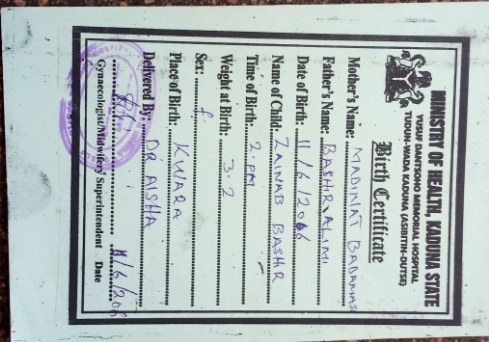 MINISTRY OF HEALTH, KADUNA STATE
YUSUF DANTSOHO MEMORIAL HOSPITAL
TUDUN-WADA KADUNA (ASIBITIN-DUTSE)
Birth Certificate
Mother's Name: MADINAT BABAMMS
Father's Name: BASHIR ALIMI
Date of Birth: 11/6/2006
Name of Child: ZAINAB BASHIR
Time of Birth: 2 PM
Weight at Birth: 3.2
Sex: f
Place of Birth: KWARA
Delivered By: DR AISHA
Gynaecologist/Midwifery Superintendent Date